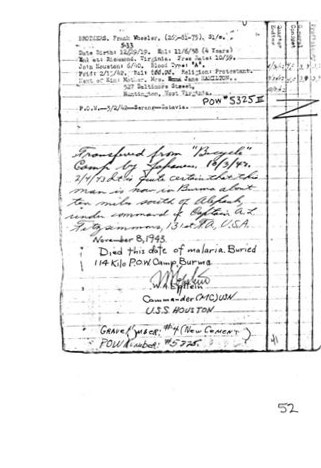 BROTHERS, Frank Wheeler, S1/c.
Date Birth: Enl: 11/6/38 (4 Years)
Enl at: Richmond. Virginia. Pres Rate: 10/39.
Join Houston: 6/40. Blood Type: "A".
Religion: Protestant.
Next of Kin: Mother, Mrs. Emma Jane HAMILTON.
527 Baltimore Street,
Huntington, West Virginia.
POW #5325 II
P.O.W.-3/2/42-Serang-Batavia.
Transfered from "Bicycle"
Camp by Japanese, 10/3/42.
2/4/43 It is quite certain that this
man is now in Burma about
ten miles south of
under command of Captain A.L.
Fitzsimmons, 131st F.A. U.S.A.
November 8, 1943.
Died this date of malaria. Buried
114 Kilo P.O.W. Camp, Burma
W.A. Epstein
Commander (MC) USN
U.S.S. HOUSTON
GRAVE NUMBER: #4 (NEW CEMENT)
POW Number:
52